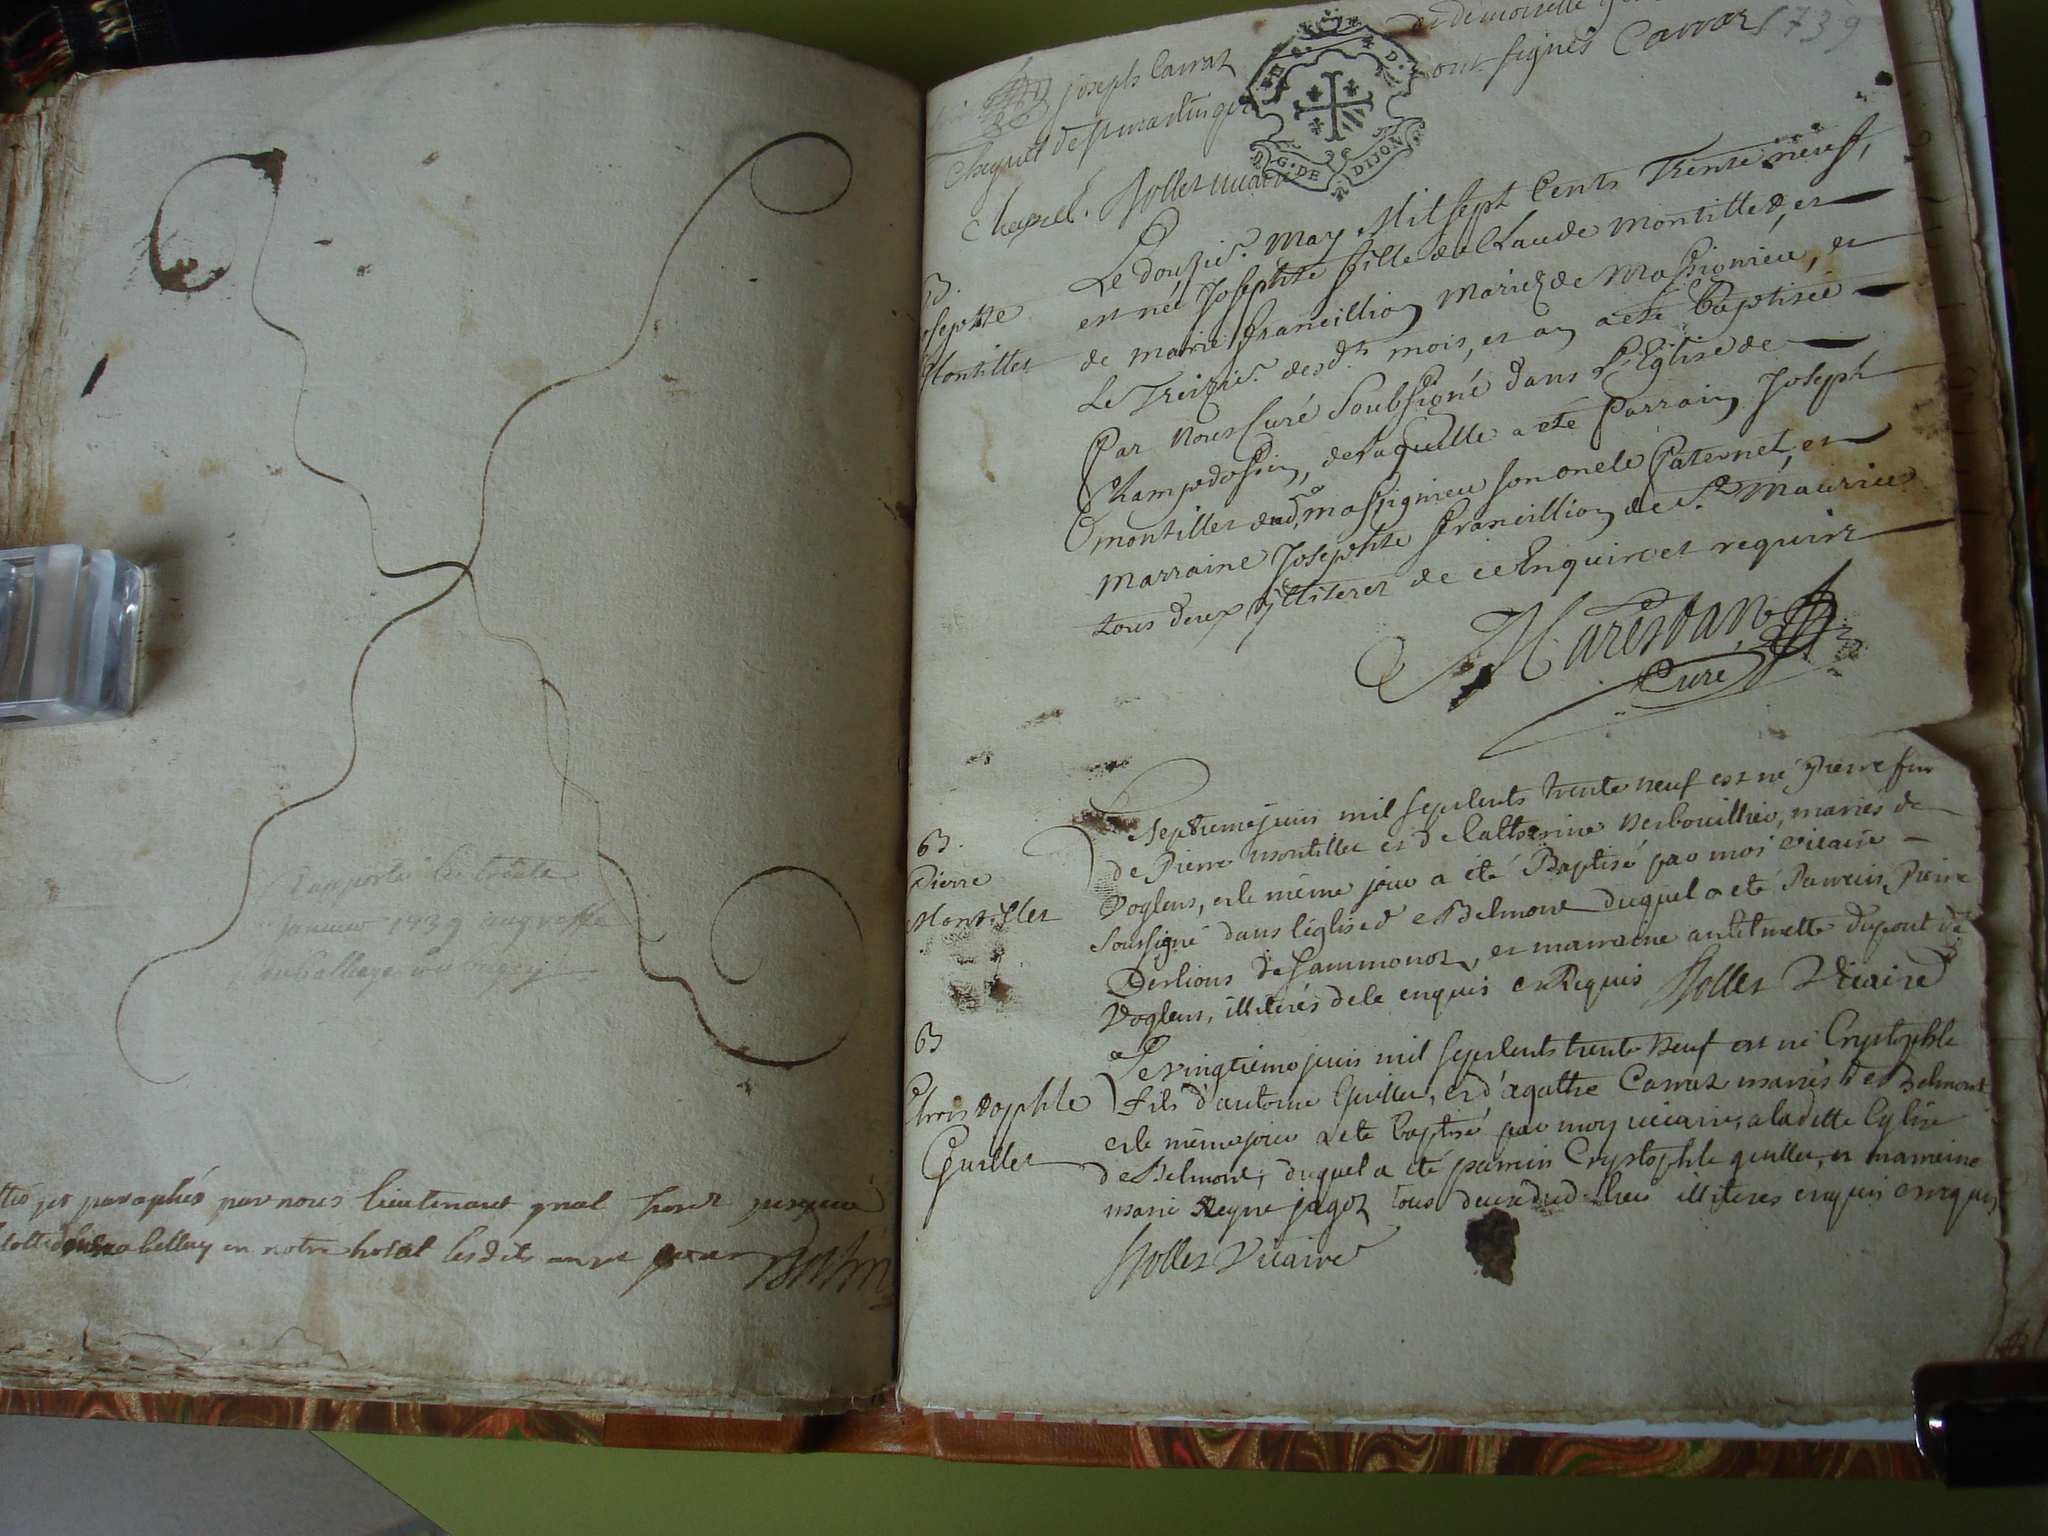 Rapporté
janvier 1739 au greffe
paraphés par nous lieutenant gnal
a belley en notre hotel lesdits an et
1739
joseph Carraz
ont signés Carraz
Cheynet de st martin
Cheynel. Rollet vicaire
G. DE DIJON
Le douzie. May Mil sept Cents Trente neuf,
est née Josephte fille de Claude Montillet, et
de marie francillion mariez de Massignieu, et
Le Treizie. desd. mois, et an a eté Baptisée
Par Nous Curé Soubsigné dans l'Eglise de
Champdossin, de laquelle a eté Parrain Joseph
montillet dud. massignieu son oncle Paternel, et
marraine Josephte francillion de St. Maurice
tous deux illiterez de ce Enquis et requis
Marestan
Curé
B.
Josephte
Montillet
Le Septieme juin mil sept Cents trente neuf est né Pierre fils
de Pierre montillet et de Catherine Verbouillier, mariés de
Voglens, et le même jour a été Baptisé par moi vicaire
soussigné dans l'église de Belmont duquel a eté Parrein Pierre
de Sammonoz, et marraine antelmette Dupont de
Voglens, illiterés de ce enquis et Requis Rollet Vicaire
B.
Pierre
Montillet
Le vingtieme juin mil sept Cents trente Neuf est né Crystophle
fils d'antoine Guillet, et d'agathe Carraz mariés de Belmont
et le même jour a eté baptisé par moy vicaire, a ladette Eglise
de Belmont, duquel a été parrein Crystophle guillet, et marraine
marie Reyne jagoz tous deux dud. lieu illiteres enquis et requis
Rollet Vicaire
B
Christophle
Guillet